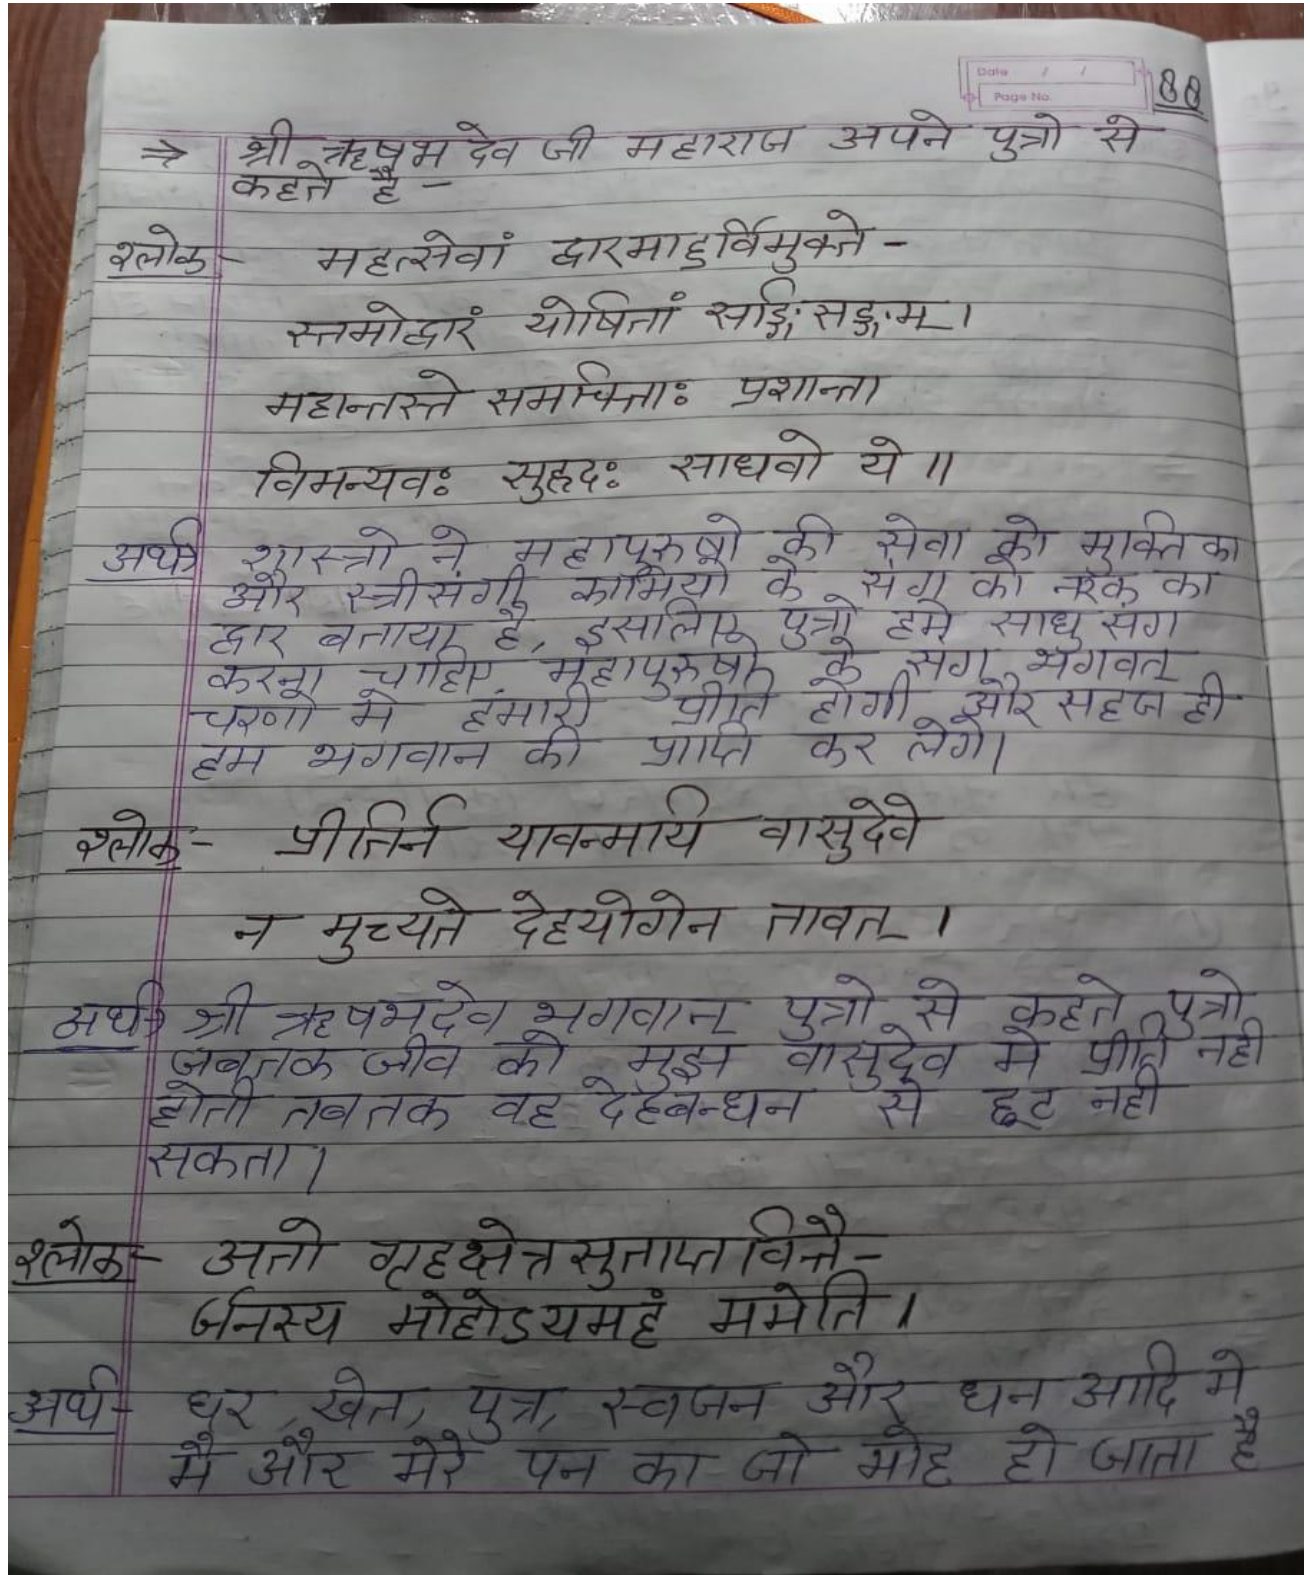 Date / /
Page No.
88
⇒ श्री ऋषभ देव जी महाराज अपने पुत्रो से
कहते है -
श्लोक - महत्सेवां द्वारमाहुर्विमुक्ते -
स्तमोद्वारं योषितां सङ्गिसङ्गम् ।
महान्तस्ते समचित्ताः प्रशान्ता
विमन्यवः सुहृदः साधवो ये ॥
अर्थ→ शास्त्रो ने महापुरुषो की सेवा को मुक्ति का
और स्त्रीसंगी कामियो के संग को नरक का
द्वार बताया है, इसलिए पुत्रो हमे साधु संग
करना चाहिए महापुरुषो के संग भगवत्
चरणो मे हमारी प्रीति होगी और सहज ही
हम भगवान की प्राप्ति कर लेगे।
श्लोक - प्रीतिर्न यावन्मयि वासुदेवे
न मुच्यते देहयोगेन तावत् ।
अर्थ→ श्री ऋषभदेव भगवान् पुत्रो से कहते पुत्रो
जबतक जीव को मुझ वासुदेव मे प्रीति नही
होती तबतक वह देहबन्धन से छूट नही
सकता।
श्लोक - अतो गृहक्षेत्रसुताप्तवित्तै -
र्जनस्य मोहोऽयमहं ममेति ।
अर्थ - घर, खेत, पुत्र, स्वजन और धन आदि मे
मै और मेरे पन का जो मोह हो जाता है